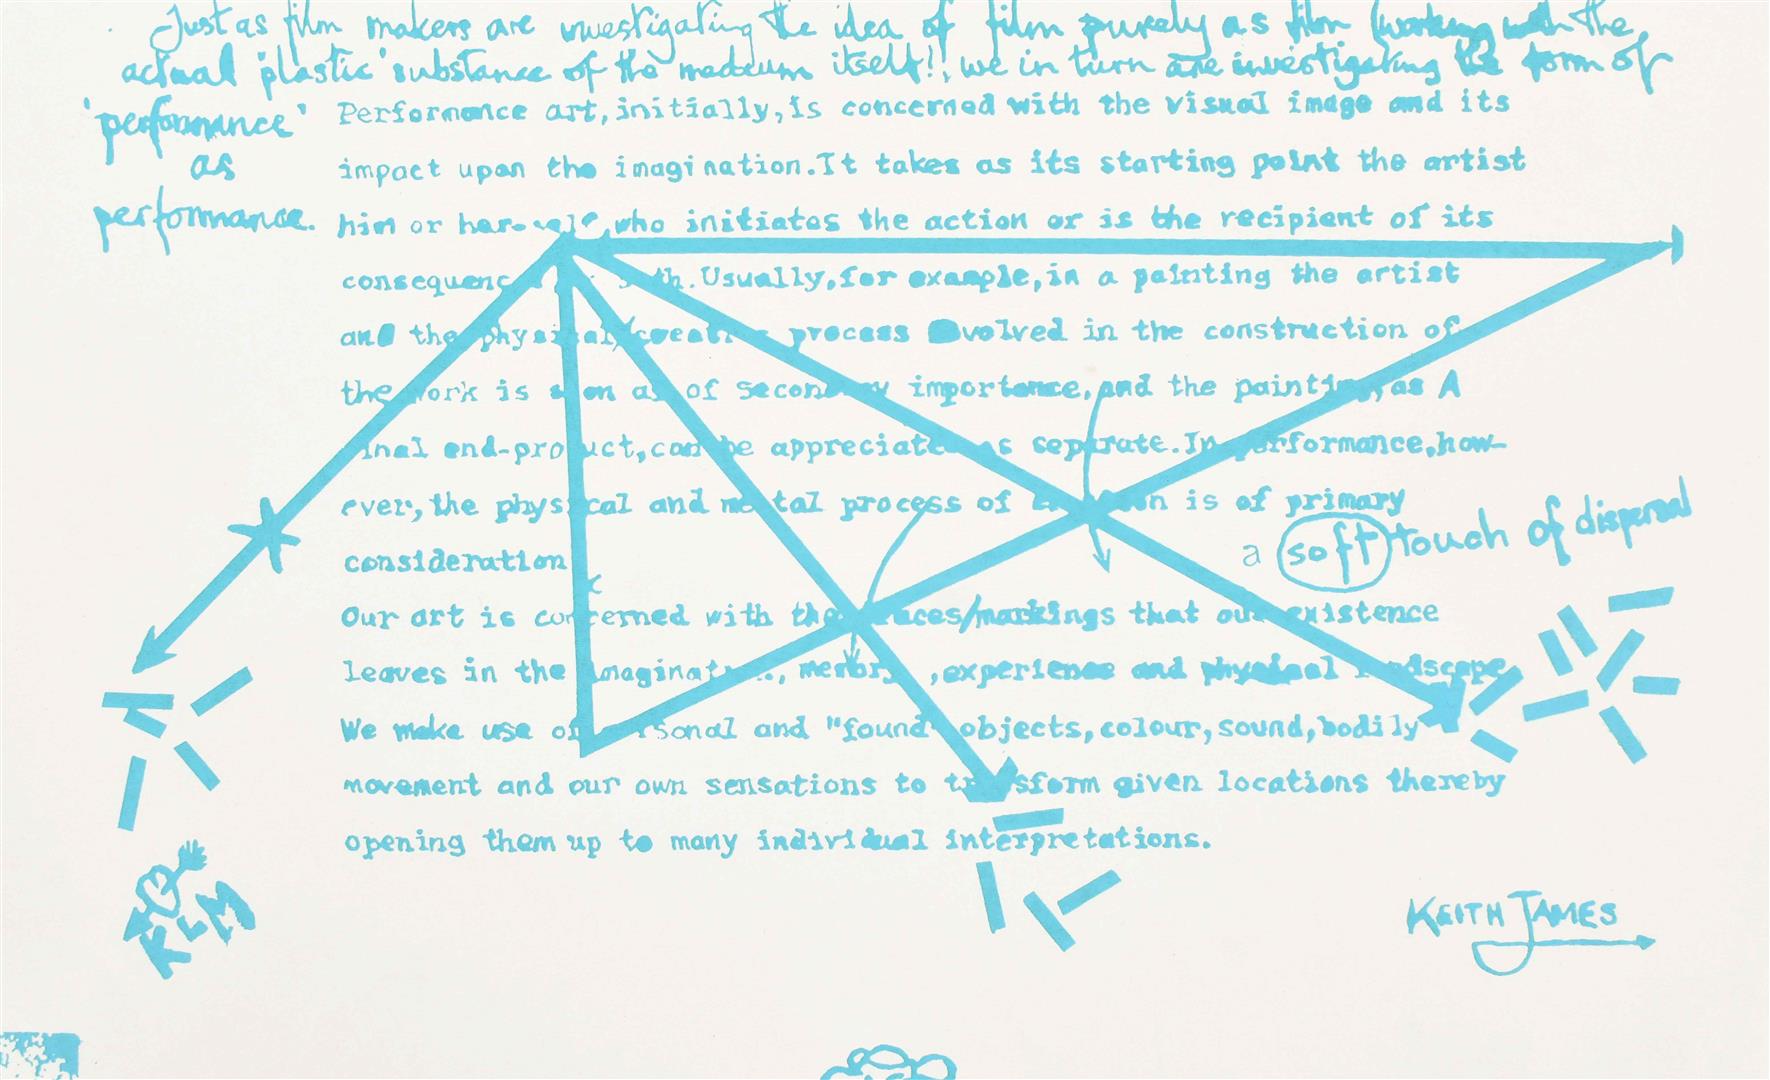 Just as film makers are investigating the idea of film purely as film (working with the
actual 'plastic' substance of the medium itself!!, we in turn are investigating the form of
'performance'
as
performance.
Performance art,initially,is concerned with the visual image and its
impact upon the imagination.It takes as its starting point the artist
him or her-self,who initiates the action or is the recipient of its
Usually,for example,in a painting the artist
and the physical/creative process in the construction of
the work is seen as of secondary importance,and the painting,as A
final end-product,can be appreciated as separate.In performance,how-
ever,the physical and mental process of is of primary
consideration
a soft touch of dispersal
Our art is concerned with the traces/markings that our existence
leaves in the imagination, memory,experience and physical landscape
We make use of personal and "found" objects,colour,sound,bodily
movement and our own sensations to transform given locations thereby
opening them up to many individual interpretations.
KLM
KEITH JAMES